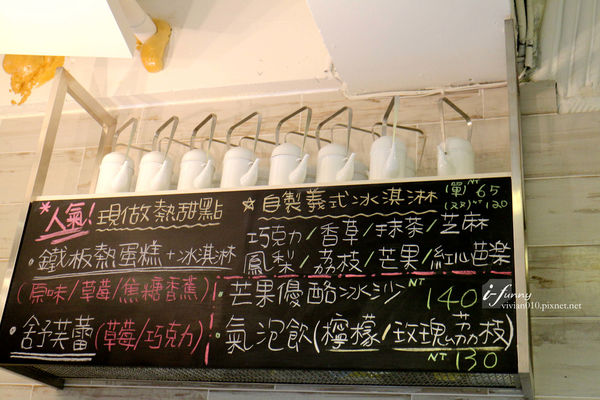 *人氣! 現做熱甜點
·鐵板熱蛋糕+冰淇淋
(原味/草莓/焦糖香蕉)
·舍予芙蕾(草莓/巧克力)
☆自製義式冰淇淋 (單)NT 65
(双)NT 120
巧克力/香草/抹茶/芝麻
鳳梨/荔枝/芒果/紅心芭樂
·芒果優酪冰沙 NT 140
·氣泡飲(檸檬/玫瑰荔枝)
NT 130
i-funny
vivian010.pixnet.net